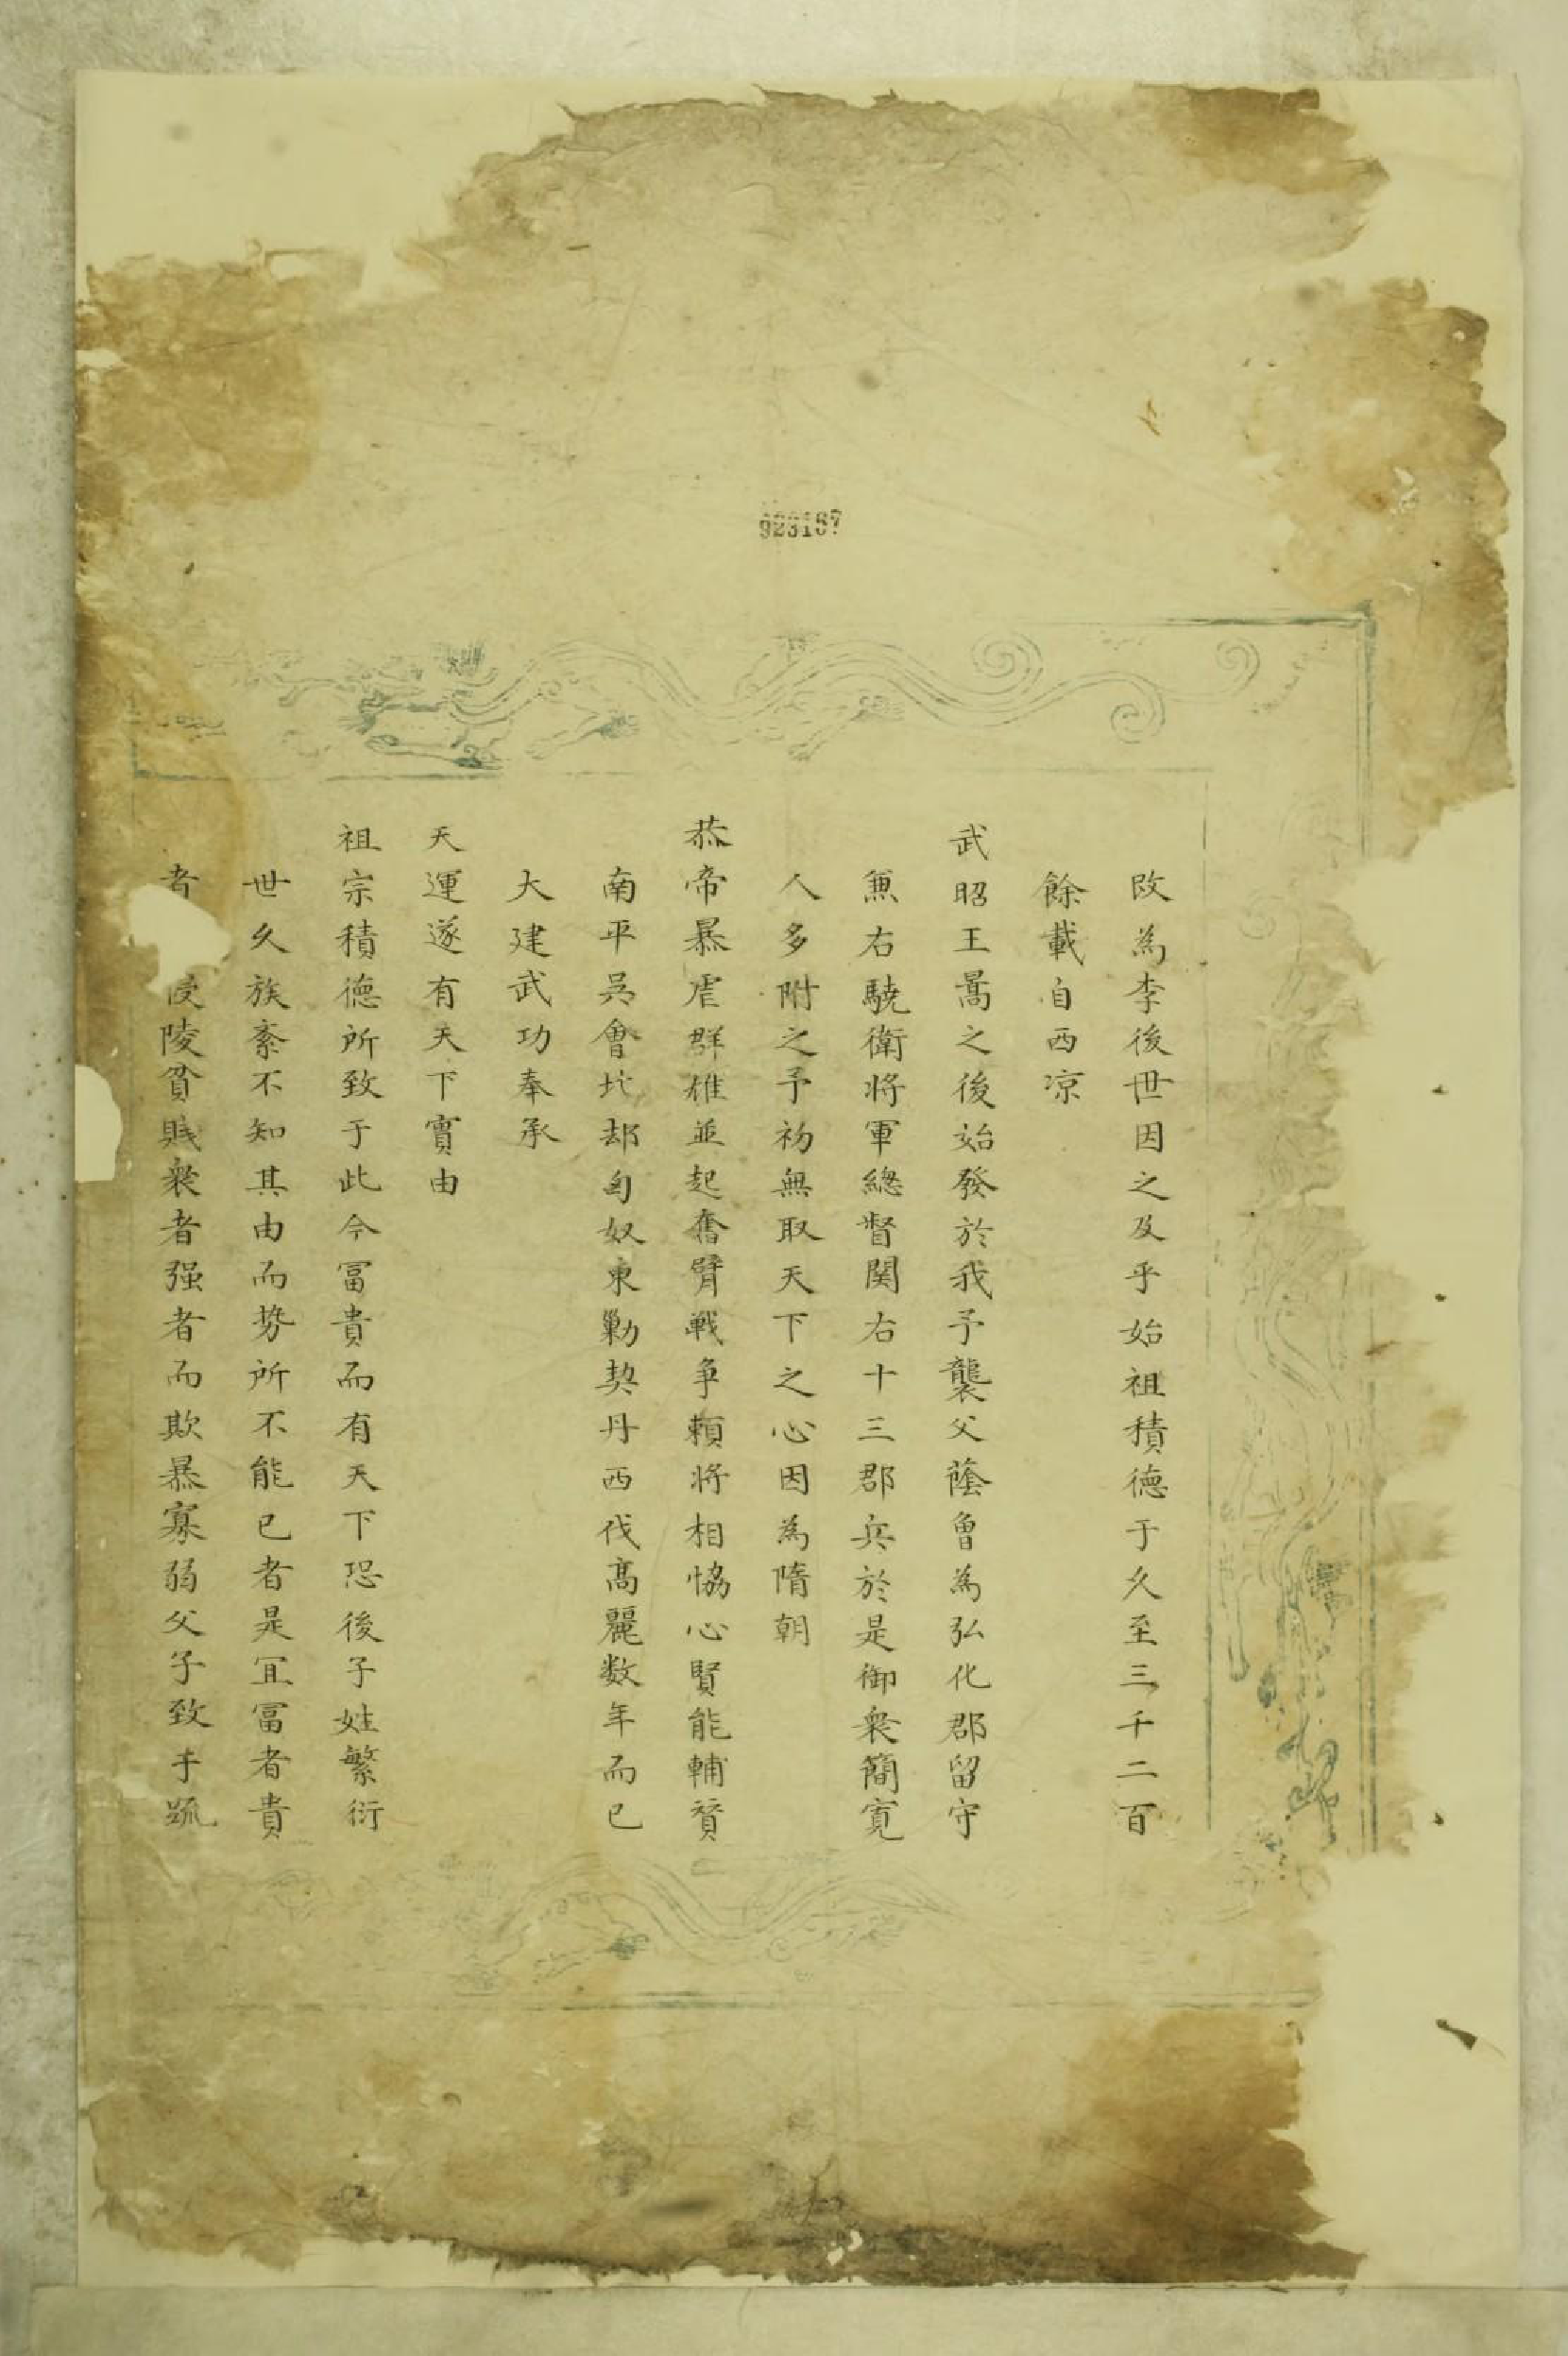 923167
改為李後世因之及乎始祖積德于久至三千二百
餘載自西凉
武昭王暠之後始發於我予襲父蔭曾為弘化郡留守
兼右驍衛將軍總督関右十三郡兵於是御衆簡寛
人多附之予初無取天下之心因為隋朝
恭帝暴虐群雄並起奮臂戰爭頼將相恊心賢能輔賛
南平吳會北却匈奴東勦契丹西伐髙麗数年而已
大建武功奉承
天運遂有天下實由
祖宗積德所致于此今冨貴而有天下恐後子姓繁衍
世久族紊不知其由而势所不能已者是冝冨者貴
者陵貧賎衆者强者而欺暴寡弱父子致于踈